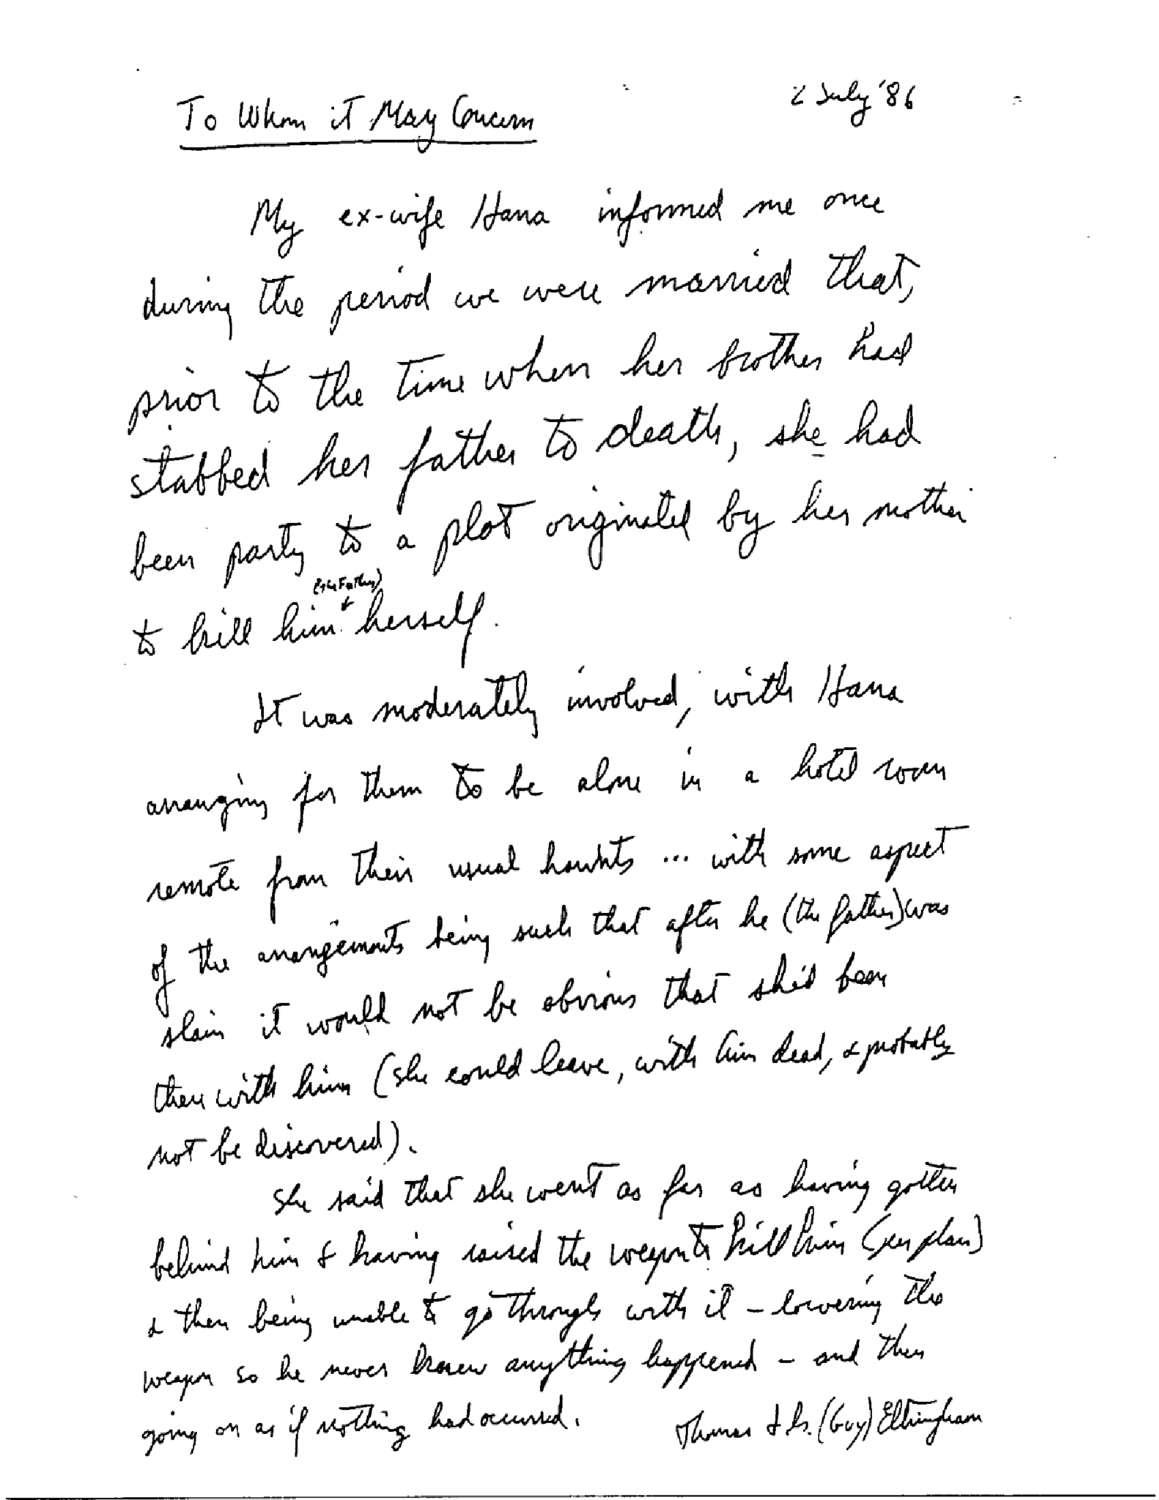 2 July '86
To Whom iT May Concern
My ex-wife Hana informed me once
during the period we were married that,
prior to the time when her brother had
stabbed her father to death, she had
been party to a plot originated by her mother
(the Father)
to kill him herself.
It was moderately involved, with Hana
arranging for them to be alone in a hotel room
remote from their usual haunts ... with some aspect
of the arrangements being such that after he (the father) was
slain it would not be obvious that she'd been
there with him (she could leave, with him dead, & probably
not be discovered).
She said that she went as far as having gotten
behind him & having raised the weapon to kill him (per plan)
& then being unable to go through with it – lowering the
weapon so he never knew anything happened – and then
going on as if nothing had occurred.
Thomas (Guy) Eltringham